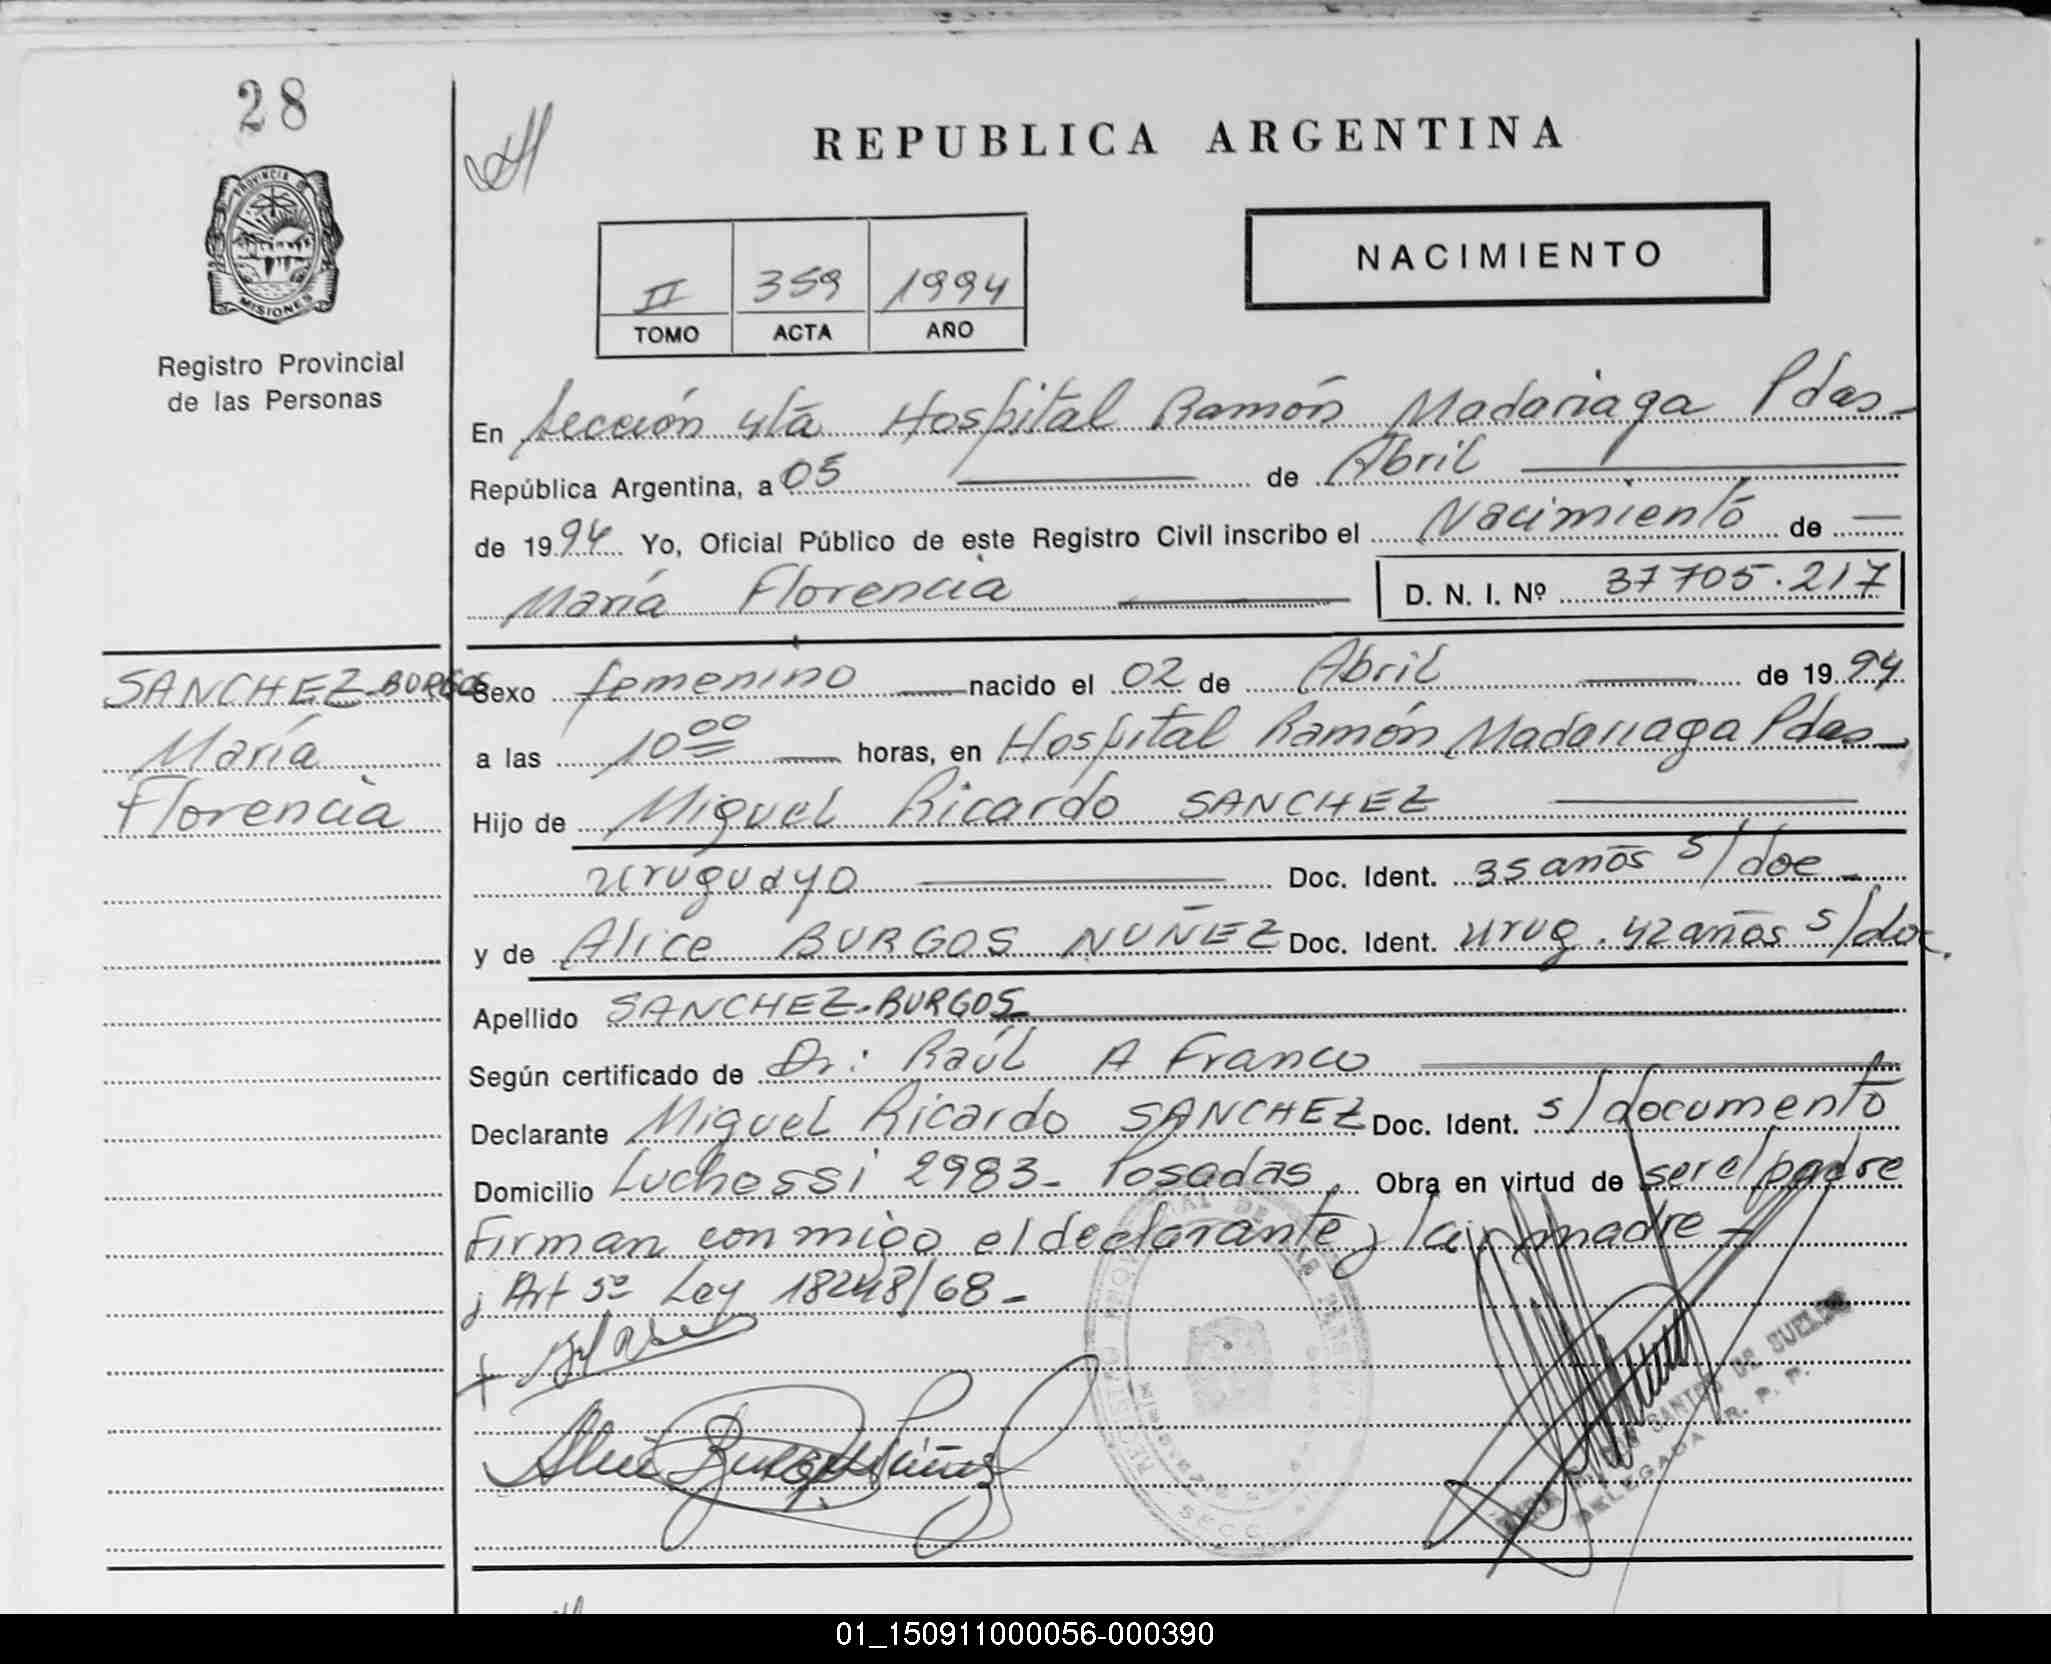 28
REPUBLICA ARGENTINA
PROVINCIA DE
MISIONES
NACIMIENTO
II 359 1994
TOMO ACTA AÑO
Registro Provincial
de las Personas
En Sección 4ta Hospital Ramón Madariaga Pdas
República Argentina, a 05 de Abril
de 1994 Yo, Oficial Público de este Registro Civil inscribo el Nacimiento de
María Florencia D. N. I. Nº 37705.217
SANCHEZ-BURGOS
María
Florencia
Sexo femenino nacido el 02 de Abril de 1994
a las 10 00 horas, en Hospital Ramón Madariaga Pdas
Hijo de Miguel Ricardo SANCHEZ
uruguayo Doc. Ident. 35 años s/doc
y de Alice BURGOS NUÑEZ Doc. Ident. urug. 42 años s/doc.
Apellido SANCHEZ-BURGOS
Según certificado de Dr: Raúl A Franco
Declarante Miguel Ricardo SANCHEZ Doc. Ident. s/documento
Domicilio Luchessi 2983- Posadas Obra en virtud de ser el padre
Firman conmigo el declarante y la madre -
; Art 5º Ley 18248/68 -
Alice Burgos Núñez
SANTOS DE
DELEGADA R. P. P.
SECC
01_150911000056-000390